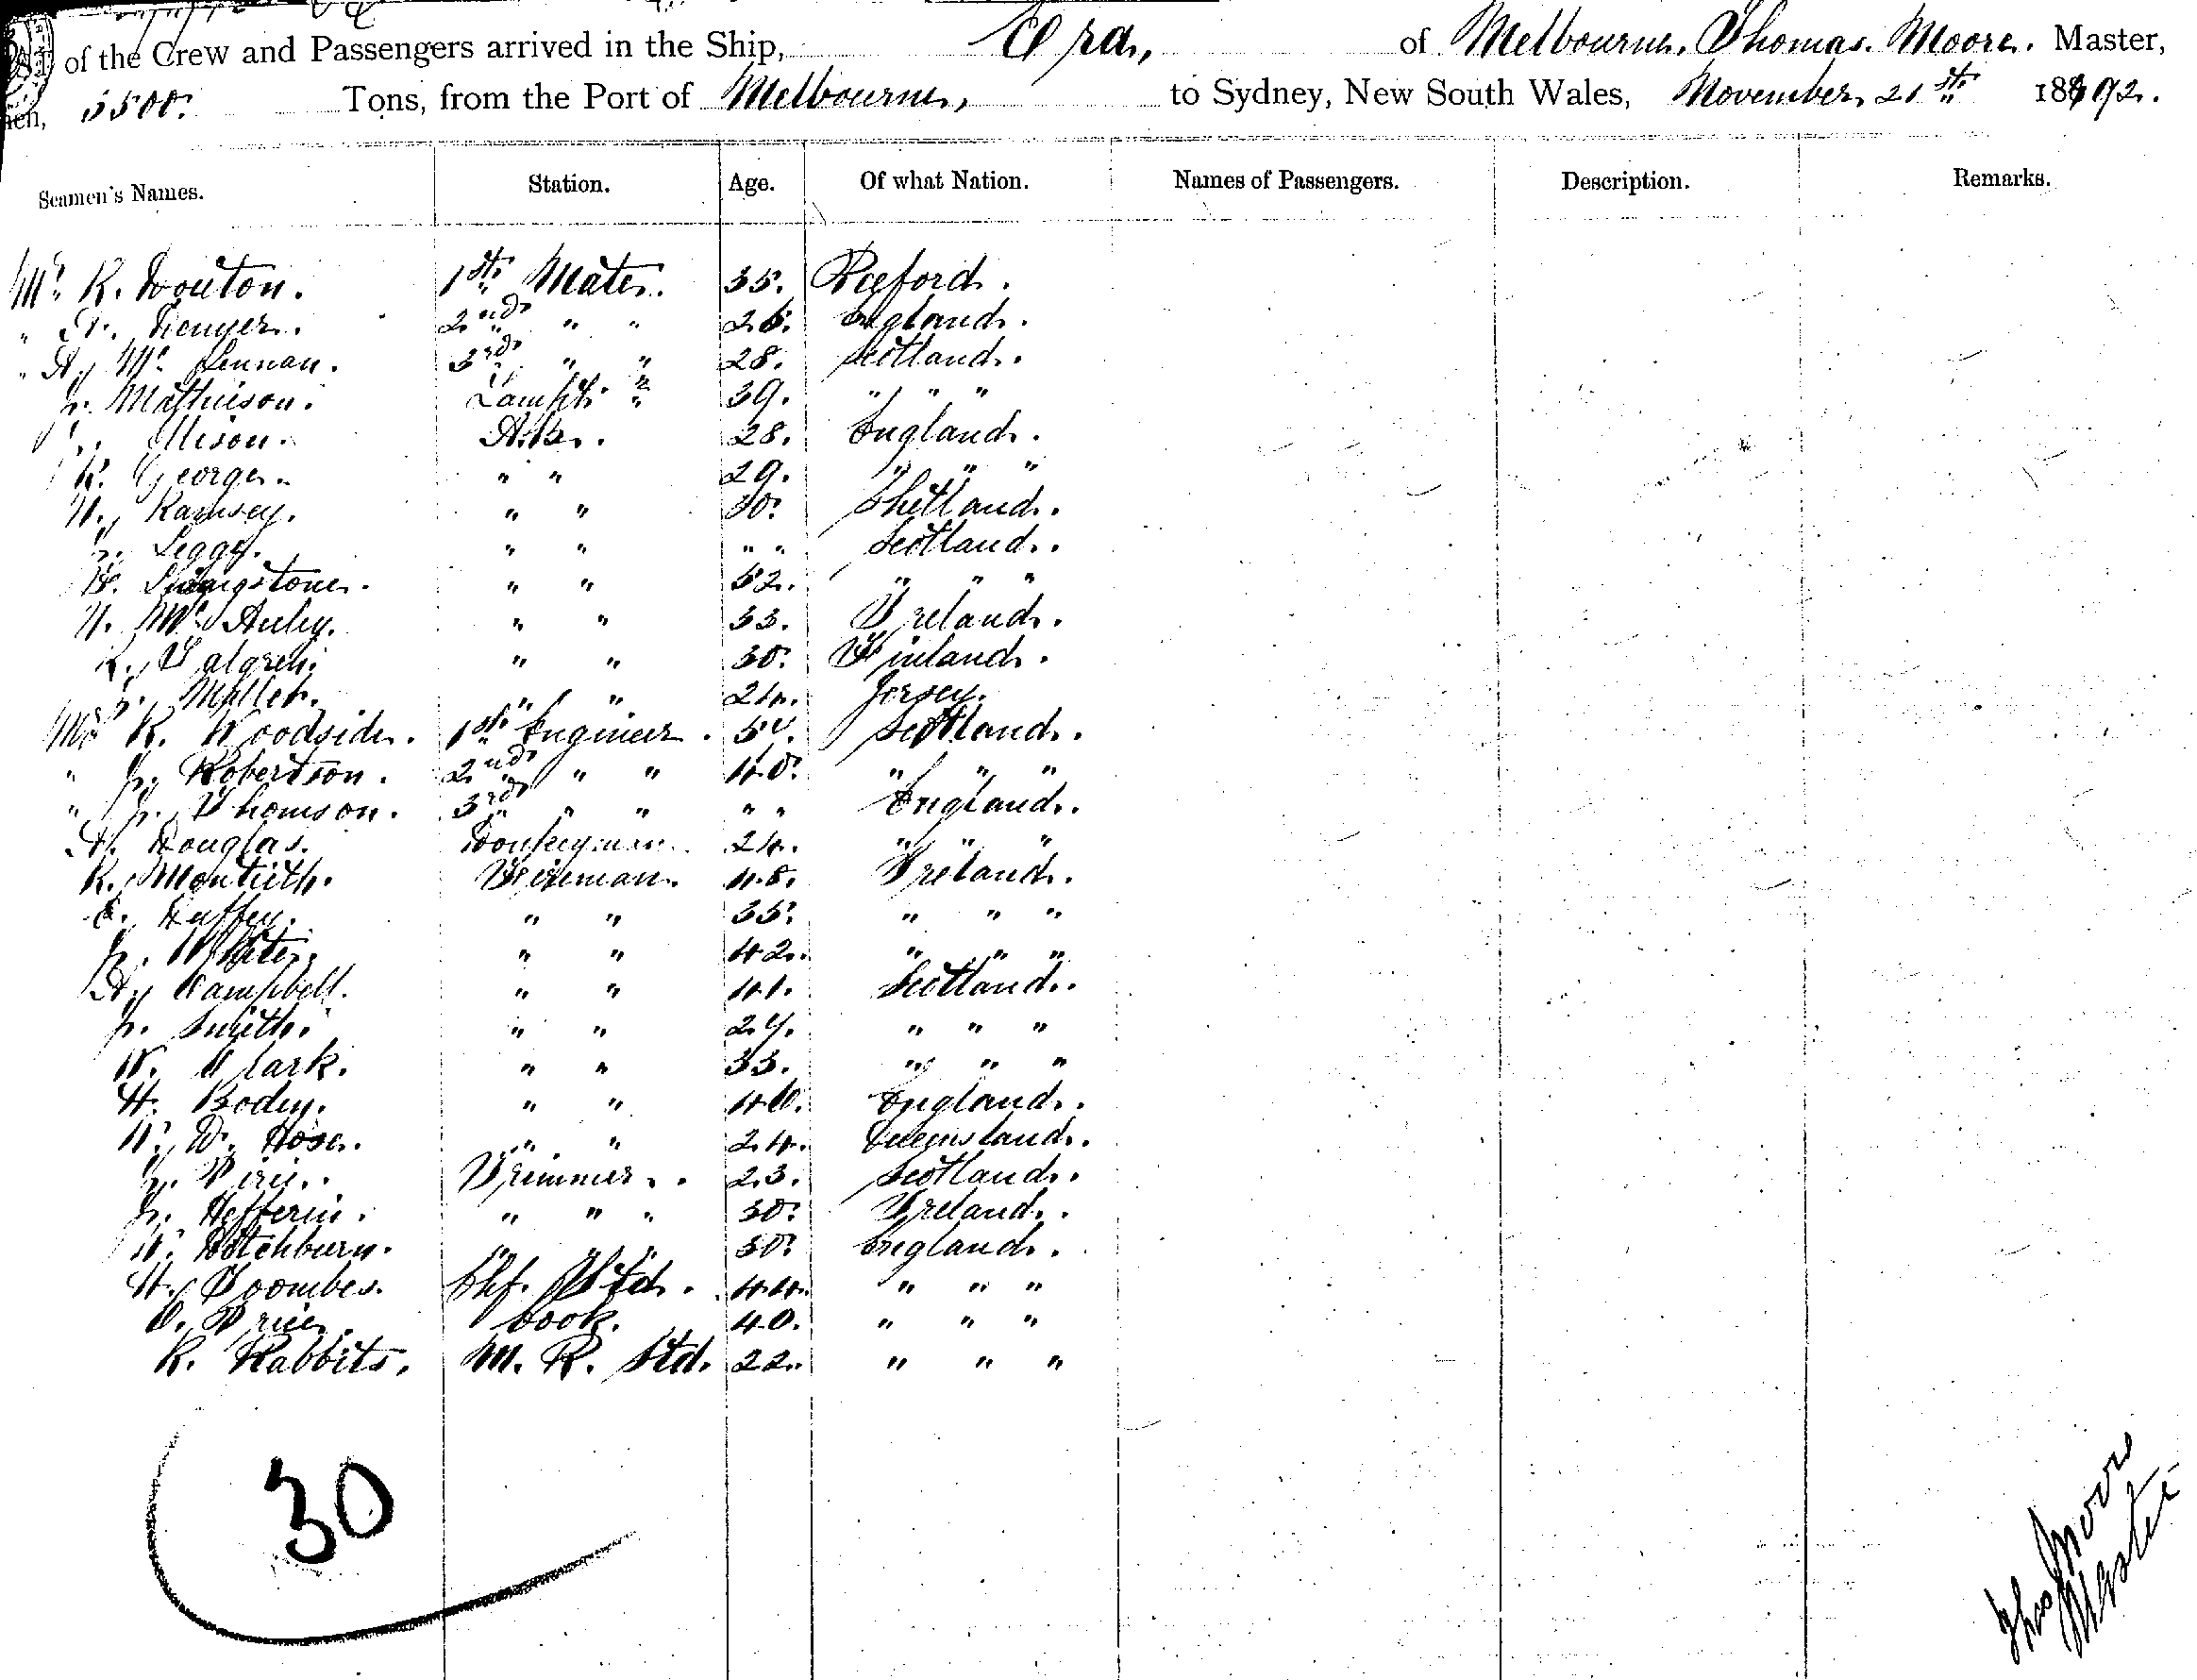 of the Crew and Passengers arrived in the Ship, Era, of Melbourne, Thomas Moore. Master,
Tons, from the Port of Melbourne, to Sydney, New South Wales, November 21st 1892.
Seamen's Names. Station. Age. Of what Nation. Names of Passengers. Description. Remarks.
Mr. R. 1st Mate. 35.
" 2nd " " 26. England.
" A. Mc Lennan. 3rd " " 28. Scotland.
J. Mathieson. Lamps " 39. " " "
Allison. A.B. 28. England.
George. " " 29. " " "
Ramsey. " " 30. Shetland.
Leggy. " " " " Scotland.
Livingstone. " " 52. " " "
Mc Auley. " " 33. Ireland.
" " 30. Finland.
Mallet. " " 24. Jersey.
Mr R. Woodside. 1st Engineer. 54. Scotland.
" J. Robertson. 2nd " " 40. " " "
" J. Thomson. 3rd " " " " England.
A. Douglas. Donkeyman. 24. " " "
R. Montieth. Fireman. 48. Ireland.
Duffey. " " 35. " " "
J. White. " " 42. " " "
A. Campbell. " " 41. Scotland.
J. Smith. " " 24. " " "
W. Clark. " " 33. " " "
H. Bodey. " " 40. England.
W. D. Rose. " " 24. Queensland.
J. Pirie. Trimmer. 23. Scotland.
J. Hefferin. " " " 30. Ireland.
W. " " " 30. England.
H. Toombes. Chf. Std. 44. " " "
Price. Cook. 40. " " "
R. Rabbits. M. R. Std. 22. " " "
30
Thos Moore
Master